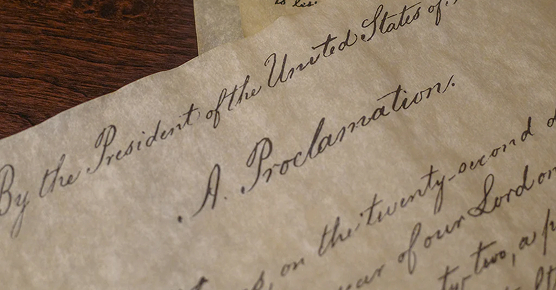 By the President of the United States of
A. Proclamation.
on the twenty-second
year of our Lord on
ty-two, a p